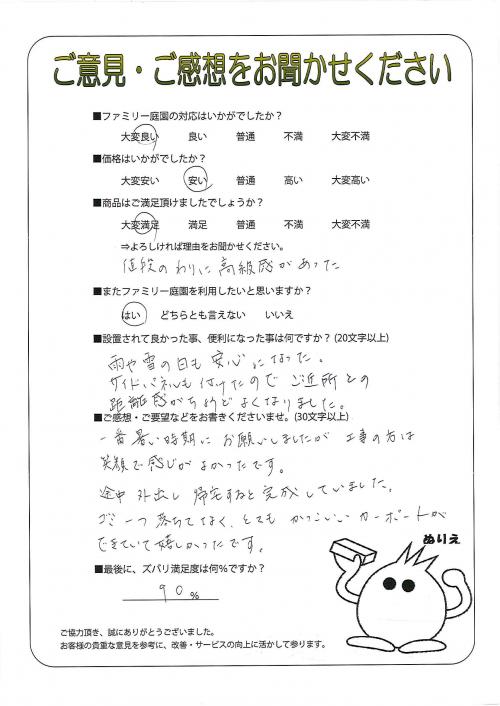 ご意見・ご感想をお聞かせください
■ファミリー庭園の対応はいかがでしたか？
大変良い　良い　普通　不満　大変不満
■価格はいかがでしたか？
大変安い　安い　普通　高い　大変高い
■商品はご満足頂けましたでしょうか？
大変満足　満足　普通　不満　大変不満
⇒よろしければ理由をお聞かせください。
値段のわりに高級感があった
■またファミリー庭園を利用したいと思いますか？
はい　どちらとも言えない　いいえ
■設置されて良かった事、便利になった事は何ですか？(20文字以上)
雨や雪の日も安心になった。
サイドパネルも付けたのでご近所との
距離感がちょうどよくなりました。
■ご感想・ご要望などをお書きくださいませ。(30文字以上)
一番暑い時期にお願いしましたが工事の方は
笑顔で感じがよかったです。
途中外出し帰宅すると完成していました。
ゴミ一つ落ちてなく、とてもかっこいいカーポートが
できていて嬉しかったです。
ぬりえ
■最後に、ズバリ満足度は何%ですか？
90%
ご協力頂き、誠にありがとうございました。
お客様の貴重な意見を参考に、改善・サービスの向上に活かして参ります。